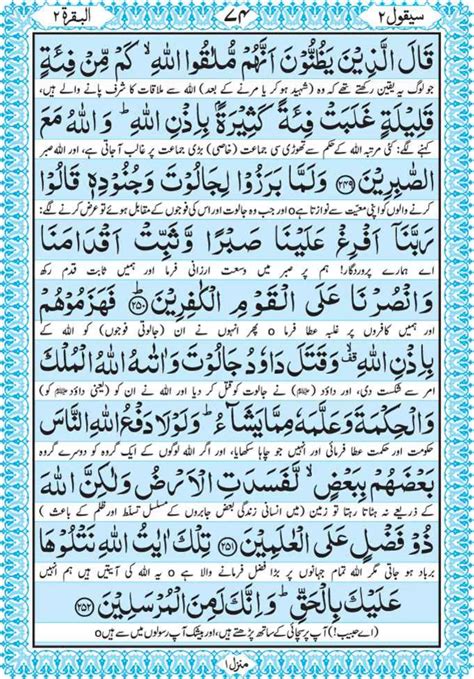 سيقول ٢ ٧٤ البقرة ٢
قَالَ الَّذِيْنَ يَظُنُّوْنَ اَنَّهُمْ مُّلٰقُوا اللّٰهِ ۙ كَمْ مِّنْ فِئَةٍ
جو لوگ یہ یقین رکھتے تھے کہ وہ (شہید ہو کر یا مرنے کے بعد) اللہ سے ملاقات کا شرف پانے والے ہیں،
قَلِيْلَةٍ غَلَبَتْ فِئَةً كَثِيْرَةًۢ بِاِذْنِ اللّٰهِ ؕ وَ اللّٰهُ مَعَ
کہنے لگے: کئی مرتبہ اللہ کے حکم سے تھوڑی سی جماعت (خاصی) بڑی جماعت پر غالب آ جاتی ہے، اور اللہ صبر
الصّٰبِرِيْنَ ﴿۲۴۹﴾ وَ لَمَّا بَرَزُوْا لِجَالُوْتَ وَ جُنُوْدِهٖ قَالُوْا
کرنے والوں کو اپنی معیت سے نوازتا ہےo اور جب وہ جالوت اور اس کی فوجوں کے مقابل ہوئے تو عرض کرنے لگے:
رَبَّنَاۤ اَفْرِغْ عَلَيْنَا صَبْرًا وَّ ثَبِّتْ اَقْدَامَنَا
اے ہمارے پروردگار! ہم پر صبر میں وسعت ارزانی فرما اور ہمیں ثابت قدم رکھ
وَ انْصُرْنَا عَلَى الْقَوْمِ الْكٰفِرِيْنَ ﴿۲۵۰﴾ فَهَزَمُوْهُمْ
اور ہمیں کافروں پر غلبہ عطا فرماo پھر انہوں نے ان (جالوتی فوجوں) کو اللہ کے
بِاِذْنِ اللّٰهِ ۙ۫ وَ قَتَلَ دَاوٗدُ جَالُوْتَ وَ اٰتٰىهُ اللّٰهُ الْمُلْكَ
امر سے شکست دی، اور داؤد (ﷺ) نے جالوت کو قتل کر دیا اور اللہ نے ان کو (یعنی داؤد کو)
وَ الْحِكْمَةَ وَ عَلَّمَهٗ مِمَّا يَشَآءُ ؕ وَ لَوْ لَا دَفْعُ اللّٰهِ النَّاسَ
حکومت اور حکمت عطا فرمائی اور انہیں جو چاہا سکھایا، اور اگر اللہ لوگوں کے ایک گروہ کو دوسرے گروہ
بَعْضَهُمْ بِبَعْضٍ ۙ لَّفَسَدَتِ الْاَرْضُ وَ لٰكِنَّ اللّٰهَ
کے ذریعے نہ ہٹاتا رہتا تو زمین (میں انسانی زندگی بعض جابروں کے مسلسل تسلط اور ظلم کے باعث)
ذُوْ فَضْلٍ عَلَى الْعٰلَمِيْنَ ﴿۲۵۱﴾ تِلْكَ اٰيٰتُ اللّٰهِ نَتْلُوْهَا
برباد ہو جاتی مگر اللہ تمام جہانوں پر بڑا فضل فرمانے والا ہےo یہ اللہ کی آیتیں ہیں ہم
عَلَيْكَ بِالْحَقِّ ؕ وَ اِنَّكَ لَمِنَ الْمُرْسَلِيْنَ ﴿۲۵۲﴾
(اے حبیب!) آپ پر سچائی کے ساتھ پڑھتے ہیں، اور بیشک آپ رسولوں میں سے ہیںo
منزل ١